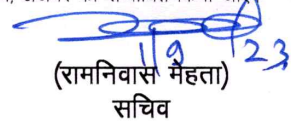 1/9/23
(रामनिवास मेहता)
सचिव